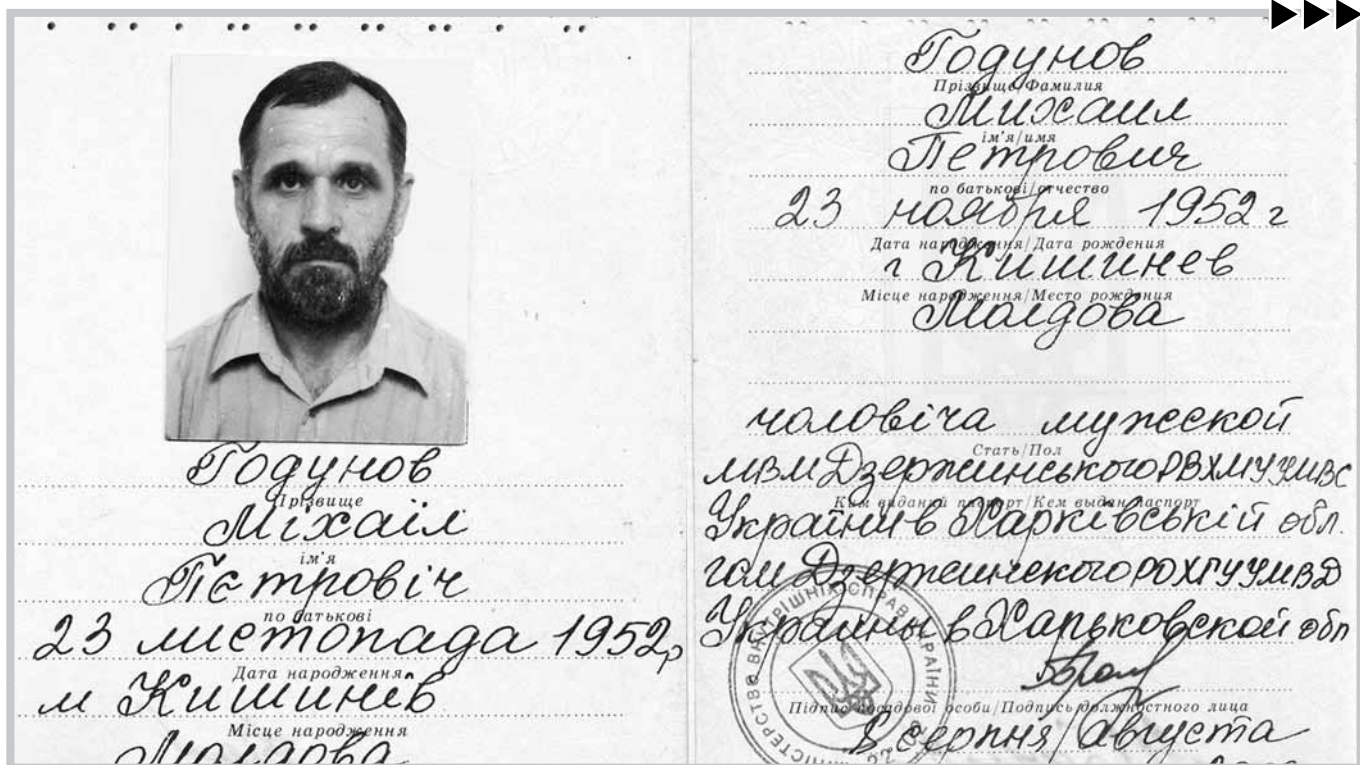 Годунов
Прізвище
Міхаіл
ім'я
Пєтровіч
по батькові
23 листопада 1952р
Дата народження
м Кишинів
Місце народження
Молдова
Годунов
Прізвище/Фамилия
Михаил
ім'я/имя
Петрович
по батькові/отчество
23 ноября 1952 г
Дата народження/Дата рождения
г Кишинев
Місце народження/Место рождения
Молдова
чоловіча мужской
Стать/Пол
МВМ Дзержинського РВХМУУМВС
Ким виданий паспорт/Кем выдан паспорт
України в Харківській обл.
гом Дзержинского РОХГУУМВД
Украины в Харьковской обл
Підпис посадової особи/Подпись должностного лица
8 серпня/Августа